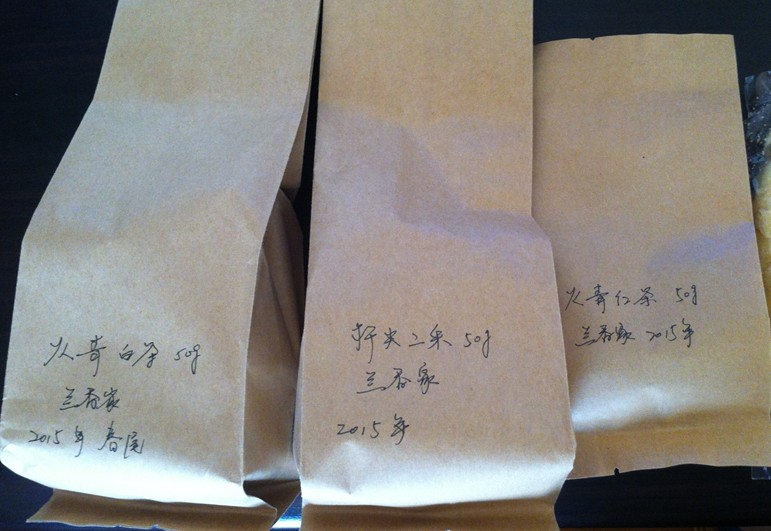 火青白茶 50g
兰香家
2015年 春尾
尖二采 50g
兰香家
2015年
火青红茶 50g
兰香家 2015年